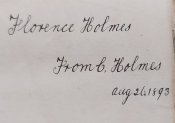 Florence Holmes
From C. Holmes
Aug 26, 1893